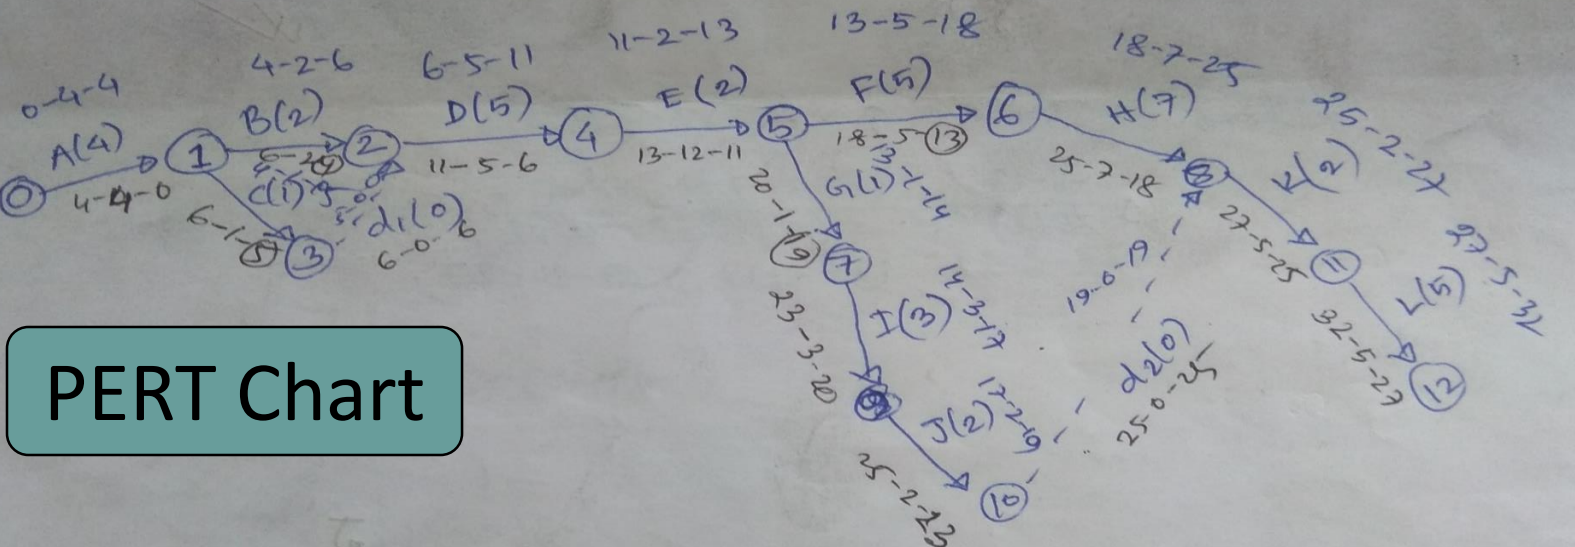 0-4-4
A(4)
4-4-0
0
1
4-2-6
B(2)
2
C(1)
6-1-5
3
d1(0)
6-0-6
6-5-11
D(5)
11-5-6
4
11-2-13
E(2)
13-12-11
5
13-5-18
F(5)
18-5-13
6
G(1)
13-1-14
20-1-19
7
I(3)
14-3-17
23-3-20
J(2)
17-2-19
25-2-23
10
d2(0)
19-0-19
25-0-25
18-7-25
H(7)
25-7-18
8
K(2)
25-2-27
27-5-25
11
L(5)
27-5-32
32-5-27
12
PERT Chart